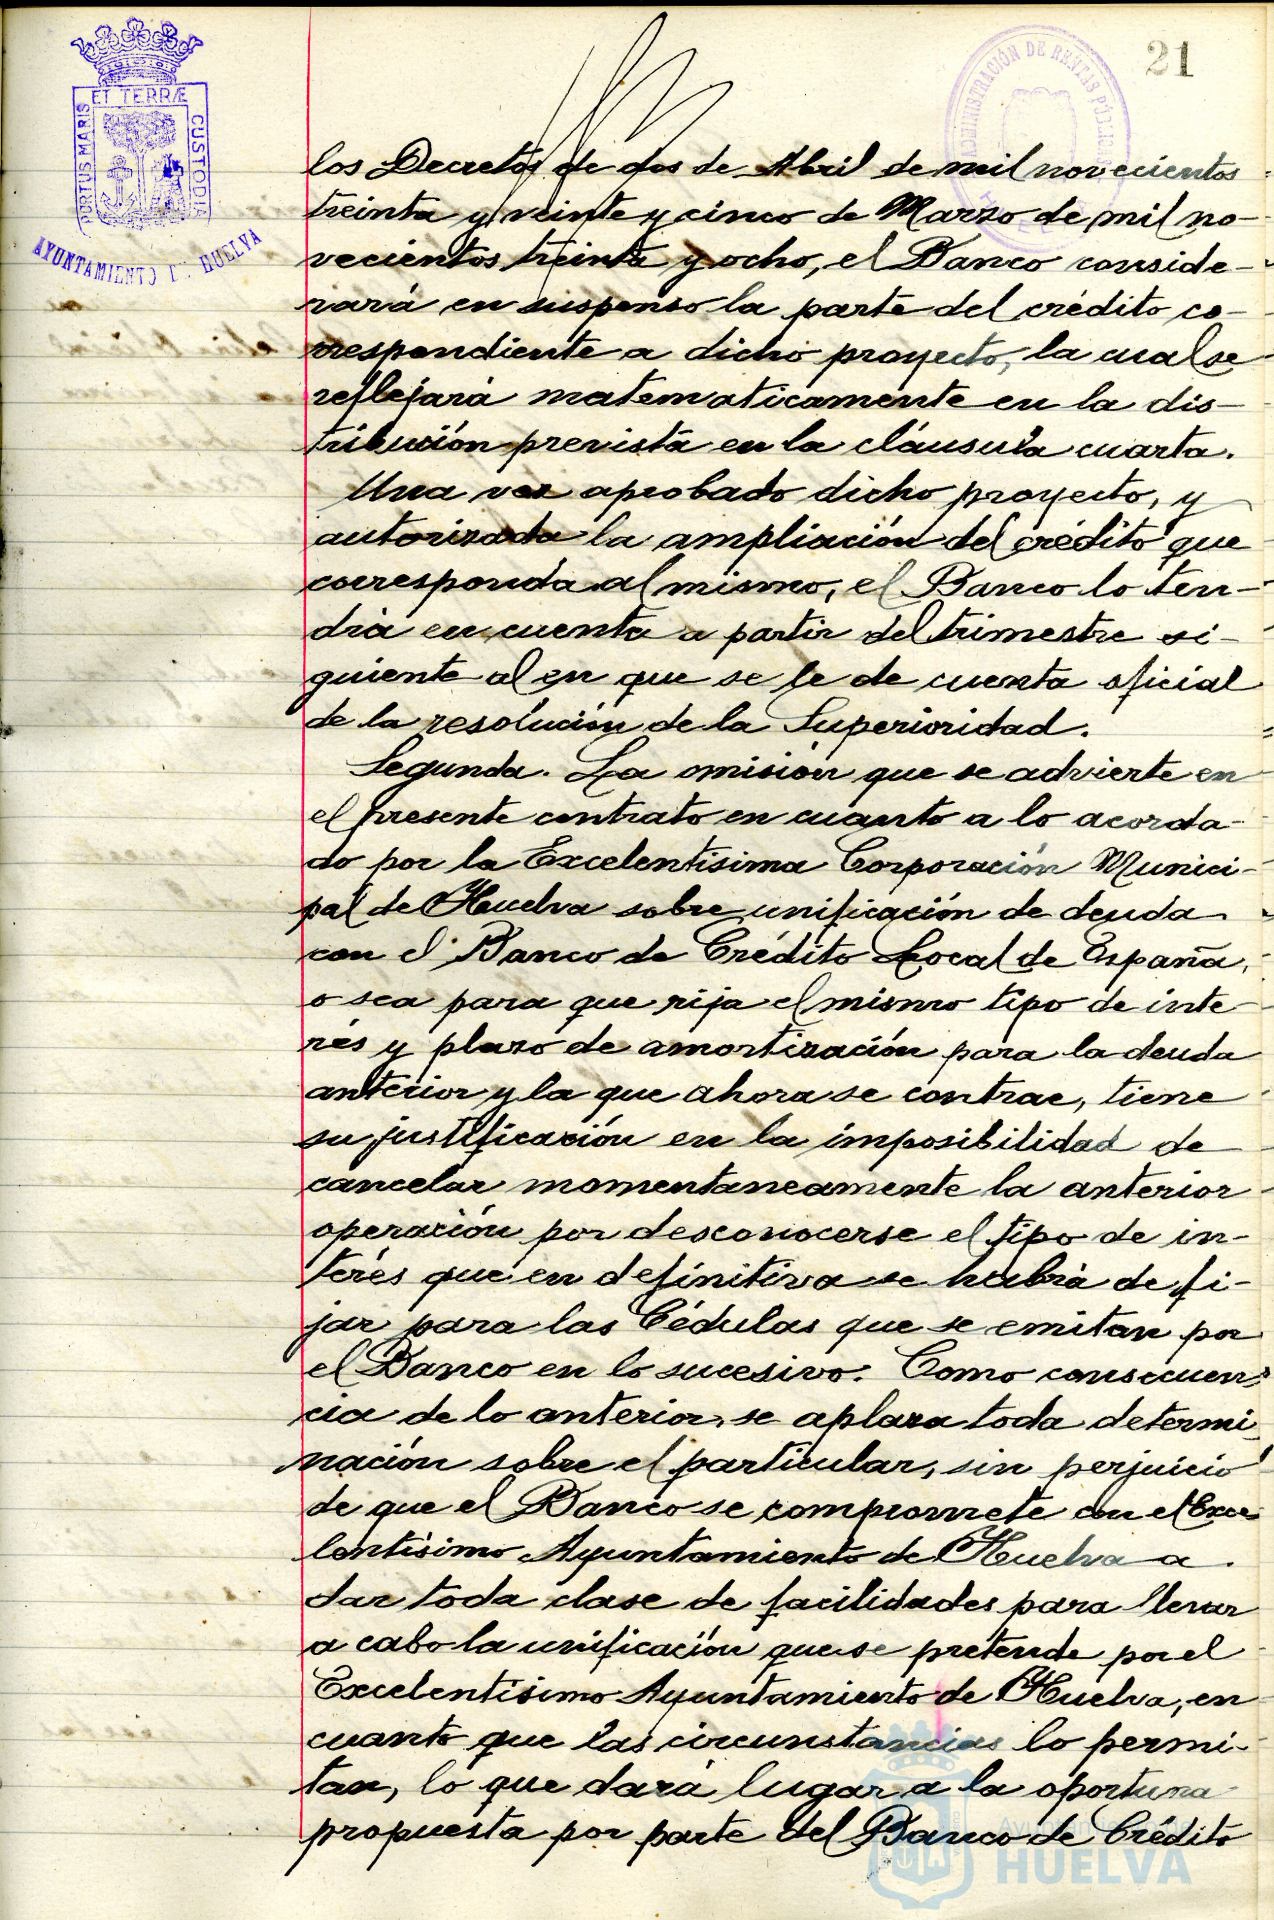 21
ET TERRÆ
PORTUS MARIS
CUSTODIA
AYUNTAMIENTO DE HUELVA
ADMINISTRACIÓN DE RENTAS PÚBLICAS
los Decretos de dos de Abril de mil novecientos
treinta y veinte y cinco de Marzo de mil no-
vecientos treinta y ocho, el Banco conside-
rará en suspenso la parte del crédito co-
rrespondiente a dicho proyecto, la cual se
reflejará matematicamente en la dis-
tribución prevista en la cláusula cuarta.
Una vez aprobado dicho proyecto, y
autorizada la ampliación del crédito que
corresponda al mismo, el Banco lo ten-
drá en cuenta a partir del trimestre si-
guiente al en que se le de cuenta oficial
de la resolución de la Superioridad.
Segunda. La omisión que se advierte en
el presente contrato en cuanto a lo acorda-
do por la Excelentísima Corporación Munici-
pal de Huelva sobre unificación de deuda
con el Banco de Crédito Local de España,
o sea para que rija el mismo tipo de inte-
rés y plazo de amortización para la deuda
anterior y la que ahora se contrae, tiene
su justificación en la imposibilidad de
cancelar momentaneamente la anterior
operación por desconocerse el tipo de in-
terés que en definitiva se habrá de fi-
jar para las Cédulas que se emitan por
el Banco en lo sucesivo. Como consecuen-
cia de lo anterior, se aplaza toda determi-
nación sobre el particular, sin perjuicio
de que el Banco se compromete con el Exce-
lentísimo Ayuntamiento de Huelva a
dar toda clase de facilidades para llevar
a cabo la unificación que se pretende por el
Excelentísimo Ayuntamiento de Huelva, en
cuanto que las circunstancias lo permi-
tan, lo que dará lugar a la oportuna
propuesta por parte del Banco de Crédito
Ayuntamiento de
HUELVA